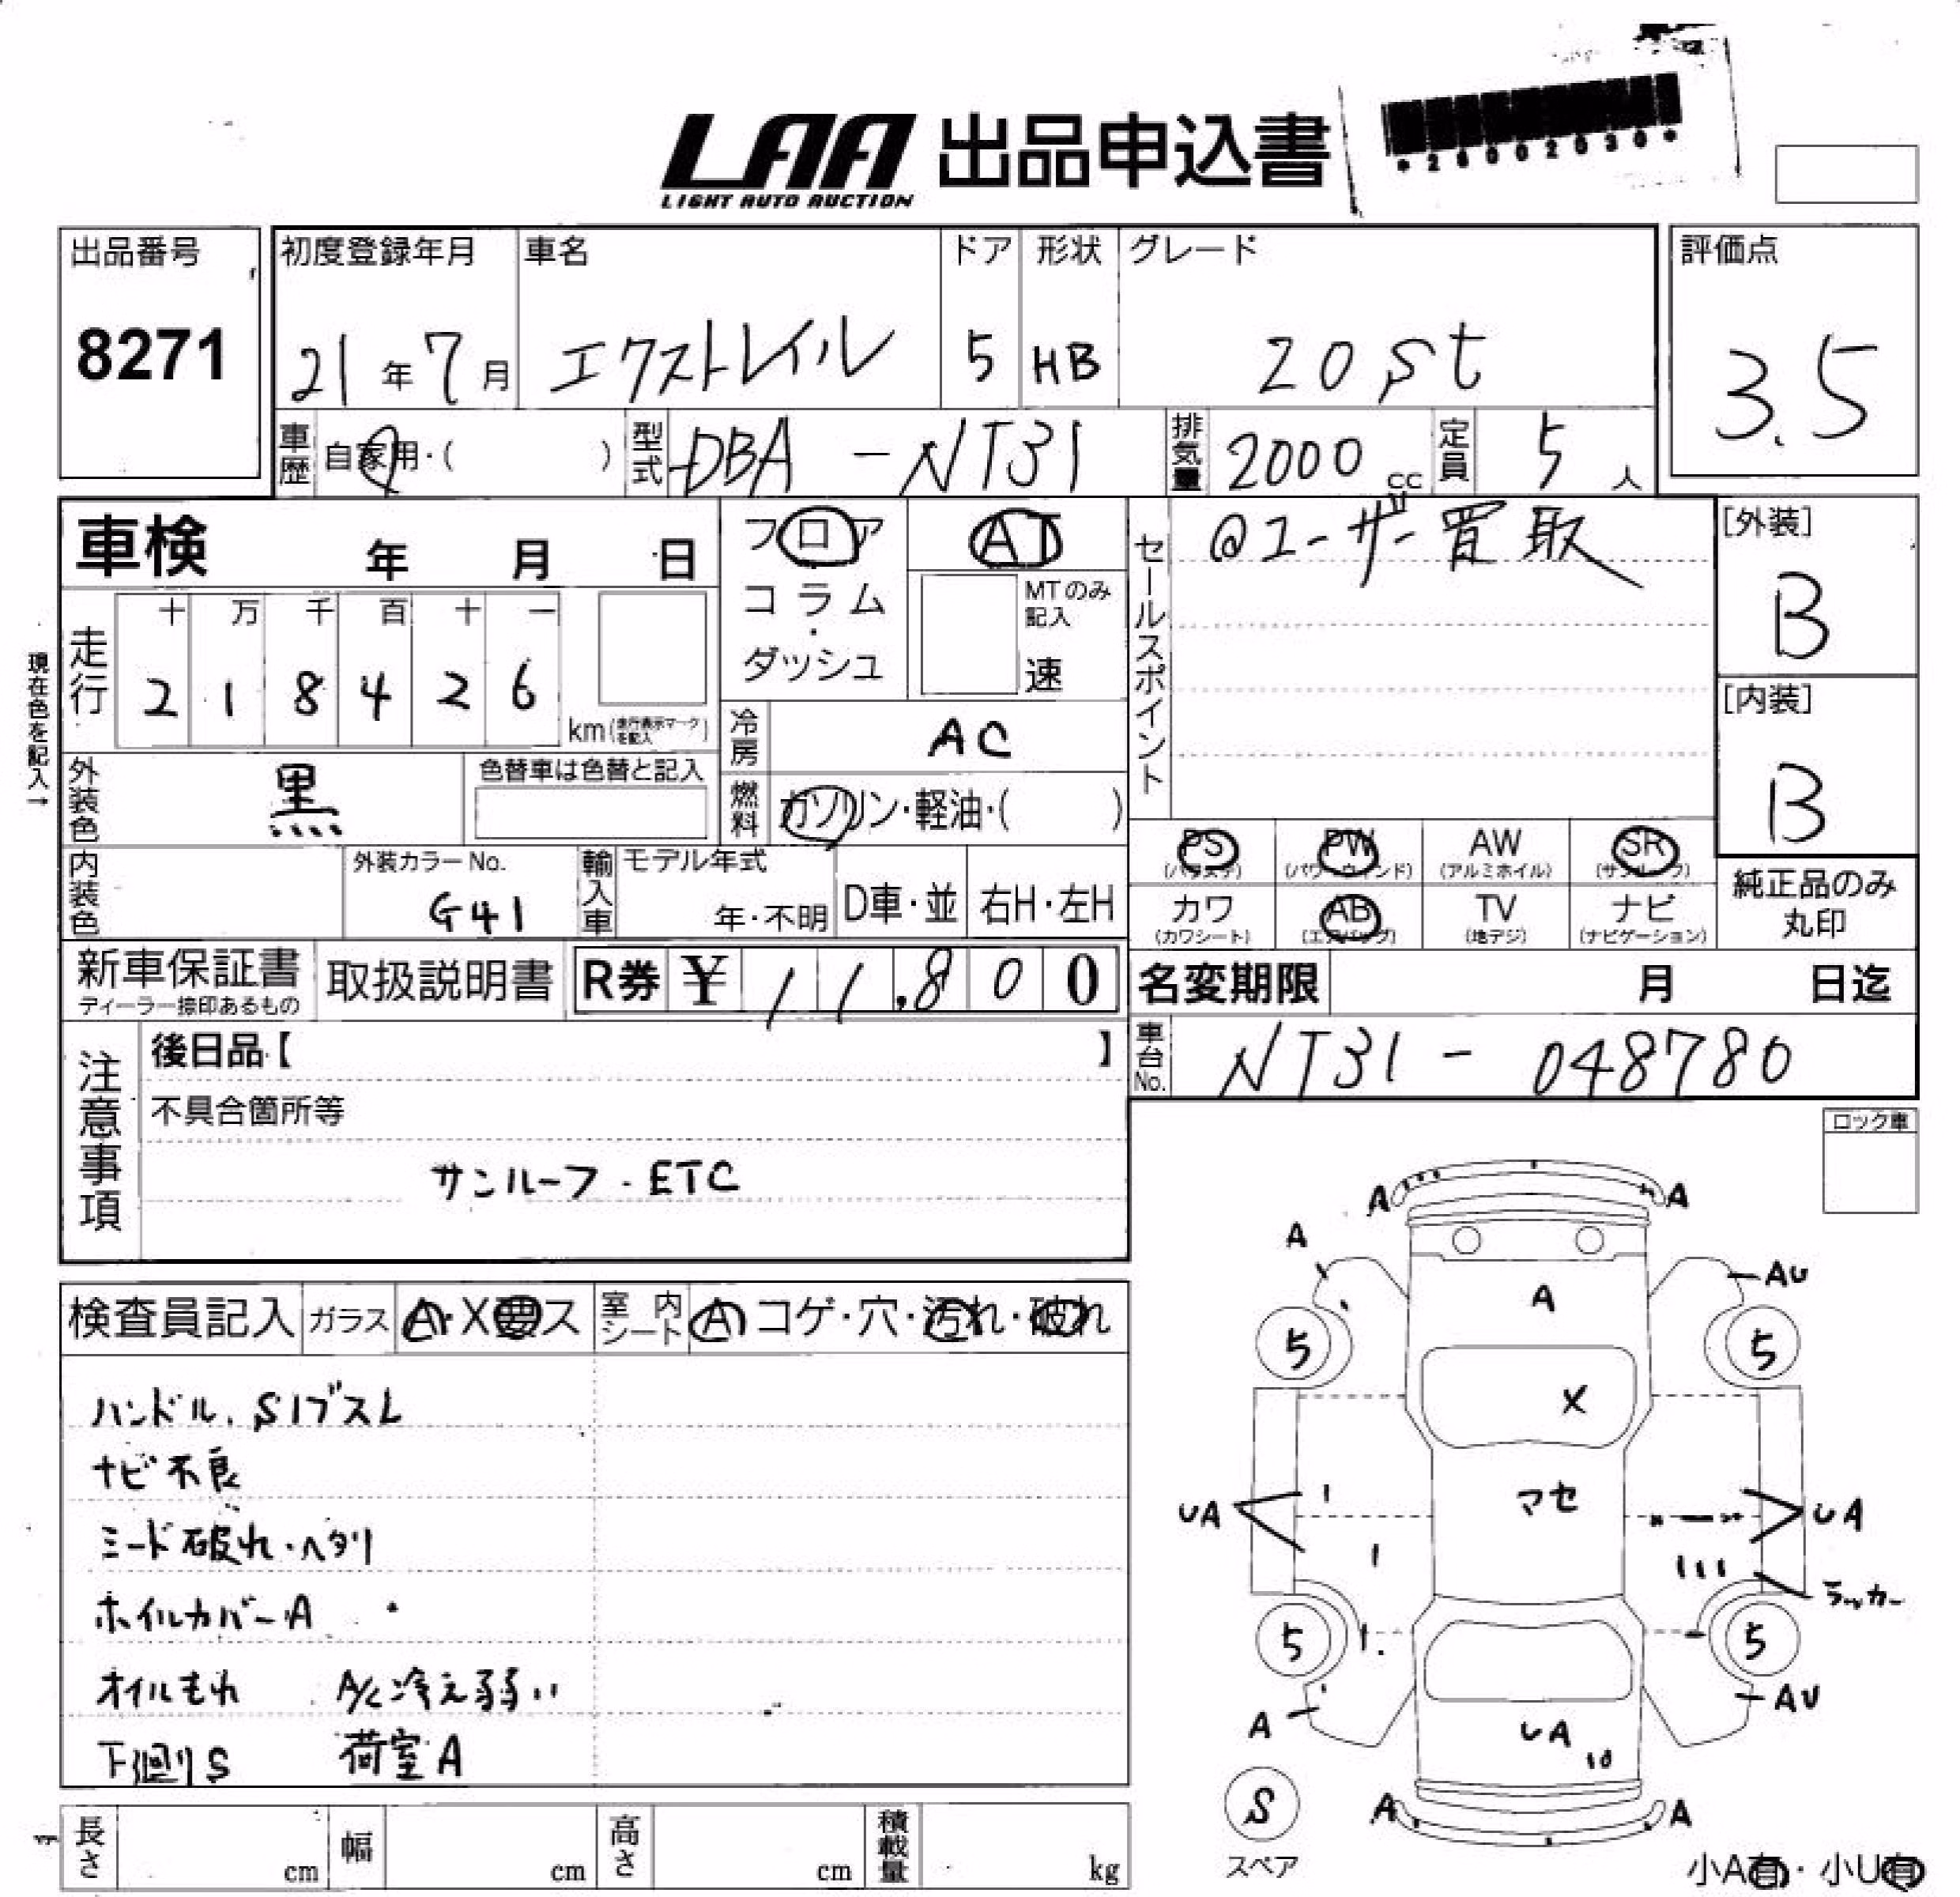 LAA 出品申込書
LIGHT AUTO AUCTION
*28002030*
出品番号
8271
初度登録年月
21年7月
車名
エクストレイル
ドア
5
形状
HB
グレード
20St
評価点
3.5
車歴
自家用・( )
型式
DBA-NT31
排気量
2000cc
定員
5人
車検 年 月 日
フロア
コラム
・
ダッシュ
AT
MTのみ
記入
速
セールスポイント
@ユーザー買取
[外装]
B
[内装]
B
現在色を記入→
走行
十 万 千 百 十 一
2 1 8 4 2 6
km(走行表示マークを記入)
冷房
AC
燃料
ガソリン・軽油・( )
外装色
黒
色替車は色替と記入
内装色
外装カラーNo.
G41
輸入車
モデル年式
年・不明
D車・並
右H・左H
PS
(パワステ)
PW
(パワーウィンド)
AW
(アルミホイル)
SR
(サンルーフ)
カワ
(カワシート)
AB
(エアバッグ)
TV
(地デジ)
ナビ
(ナビゲーション)
純正品のみ
丸印
新車保証書
ディーラー捺印あるもの
取扱説明書
R券 ¥ 11,800
名変期限 月 日迄
車台No.
NT31-048780
注意事項
後日品【 】
不具合箇所等
サンルーフ・ETC
ロック車
検査員記入
ガラス
A・X要ス
室内シート
A コゲ・穴・汚れ・破れ
ハンドル、S1ブスレ
ナビ不良
ミード破れ・ヘタリ
ホイルカバーA
オイルもれ A/C冷え弱い
下廻りS 荷室A
A A
A AU
A
5 5
X
マセ
UA UA
ラッカー
5 5
A AU
UA
10
S
スペア
A A
小A有・小U有
長さ cm
幅 cm
高さ cm
積載量 kg